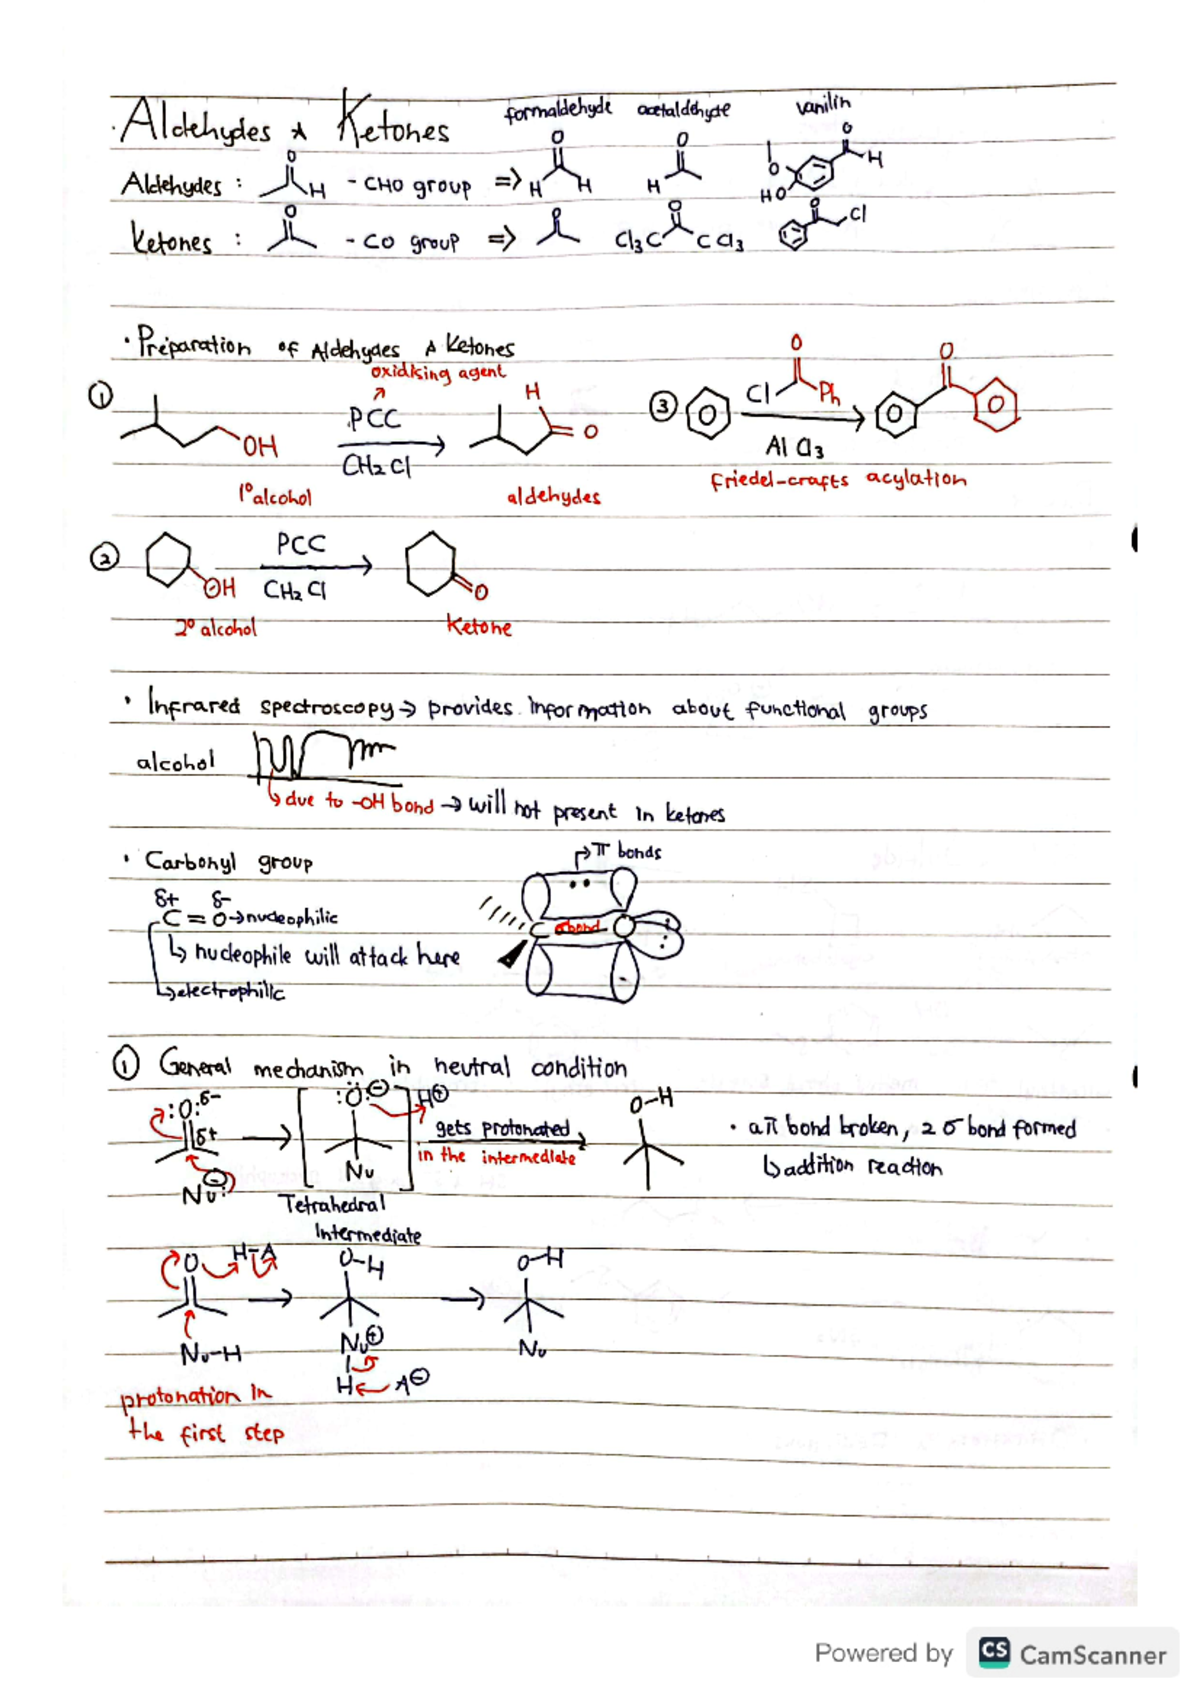 formaldehyde acetaldehyde vanilin
· Aldehydes & Ketones
Aldehydes : O H - CHO group => O H H O H O O H HO
Ketones : O - CO group => O O Cl3C CCl3 O Cl
· Preparation of Aldehydes & Ketones
oxidising agent
① OH PCC CH2Cl H O
1° alcohol aldehydes
③ O Cl Ph AlCl3 O
Friedel-crafts acylation
② OH PCC CH2Cl O
2° alcohol Ketone
· Infrared spectroscopy → provides information about functional groups
alcohol
↳ due to -OH bond → will not present in ketones
· Carbonyl group
π bonds
δ+ δ-
C = O → nucleophilic
C σbond O
↳ nucleophile will attack here
↳ electrophilic
① General mechanism in neutral condition
:O: δ- δ+ Nu: ⊖
:O: ⊖ Nu H⊕
gets protonated
in the intermediate
O-H
· a π bond broken, 2 σ bond formed
↳ addition reaction
Tetrahedral
Intermediate
O H-A Nu-H
O-H Nu⊕ H A⊖
O-H Nu
protonation in
the first step
Powered by CS CamScanner